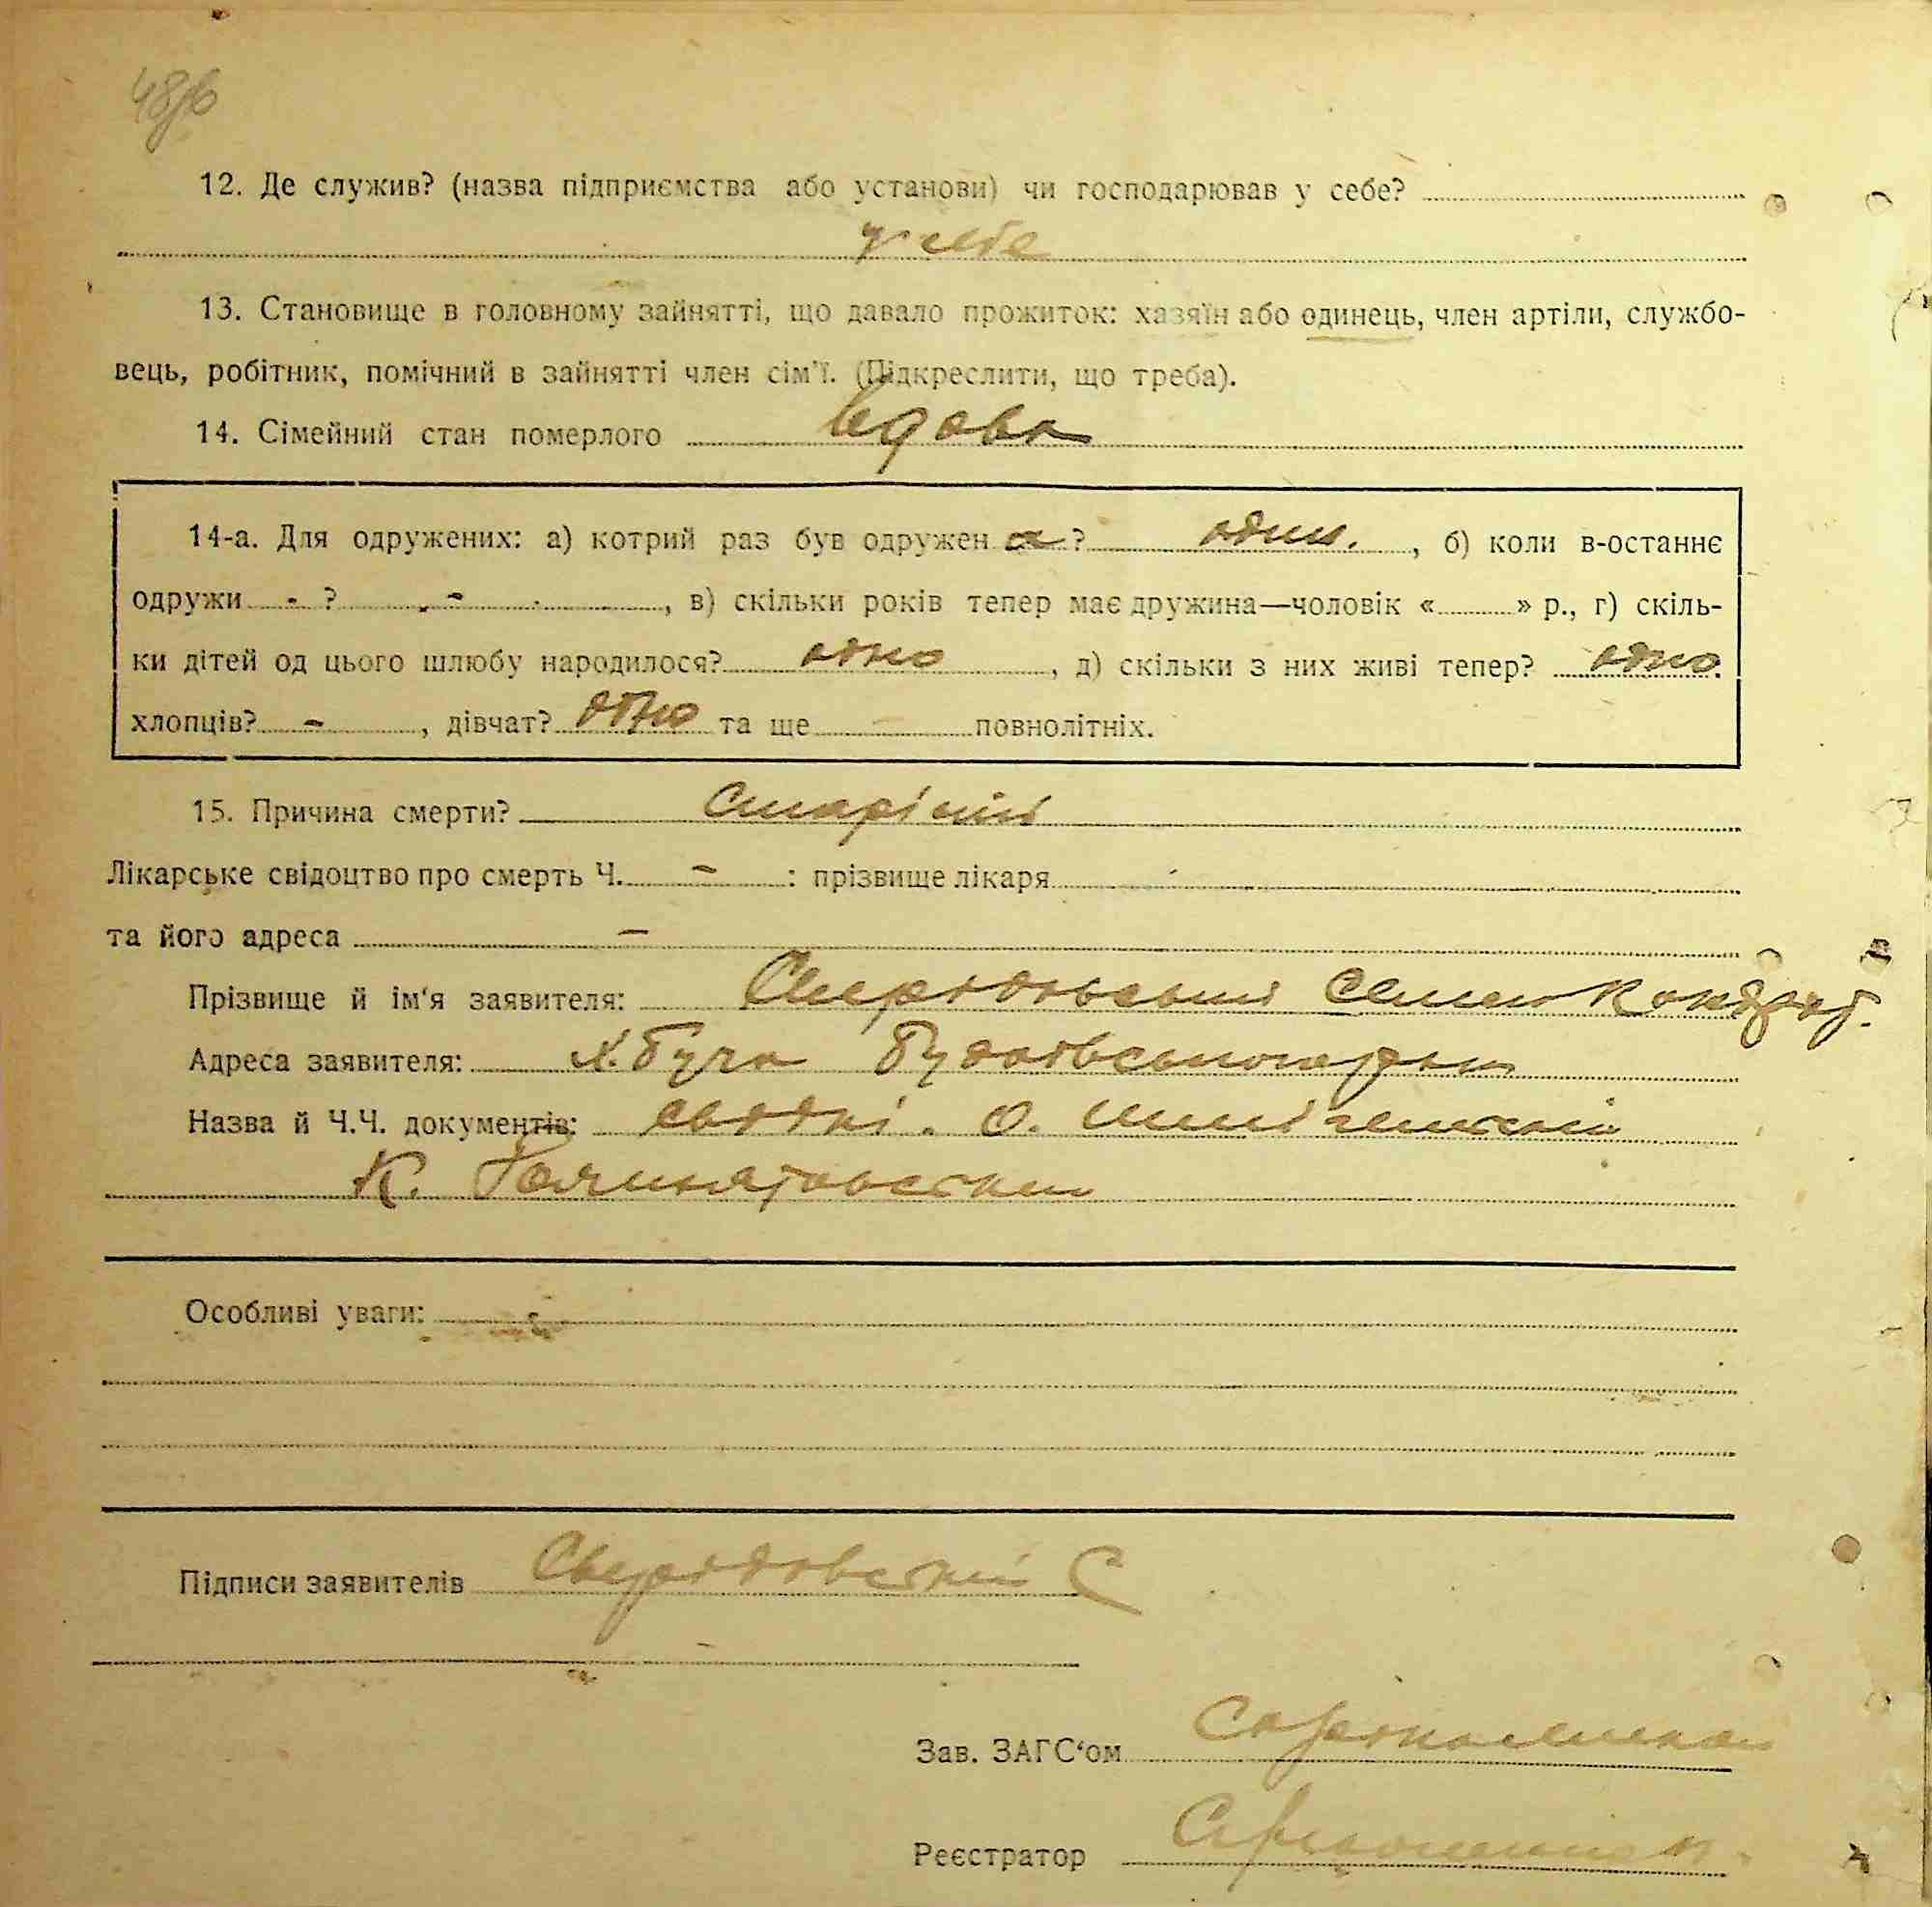 12. Де служив? (назва підприємства або установи) чи господарював у себе?
у себе
13. Становище в головному зайнятті, що давало прожиток: хазяїн або одинець, член артіли, службо-
вець, робітник, помічний в зайнятті член сім'ї. (Підкреслити, що треба).
14. Сімейний стан померлого вдова
14-а. Для одружених: а) котрий раз був одружен а ? один. , б) коли в-останнє
одружи - ? - , в) скільки років тепер має дружина—чоловік « » р., г) скіль-
ки дітей од цього шлюбу народилося? одно , д) скільки з них живі тепер? одно.
хлопців? - , дівчат? одно та ще повнолітніх.
15. Причина смерти?
Лікарське свідоцтво про смерть Ч. - : прізвище лікаря
та його адреса -
Прізвище й ім'я заявителя: Семен Кондрат.
Адреса заявителя: х. Буча
Назва й Ч.Ч. документів: свідки. О.
К.
Особливі уваги:
Підписи заявителів С
Зав. ЗАГС'ом
Реєстратор